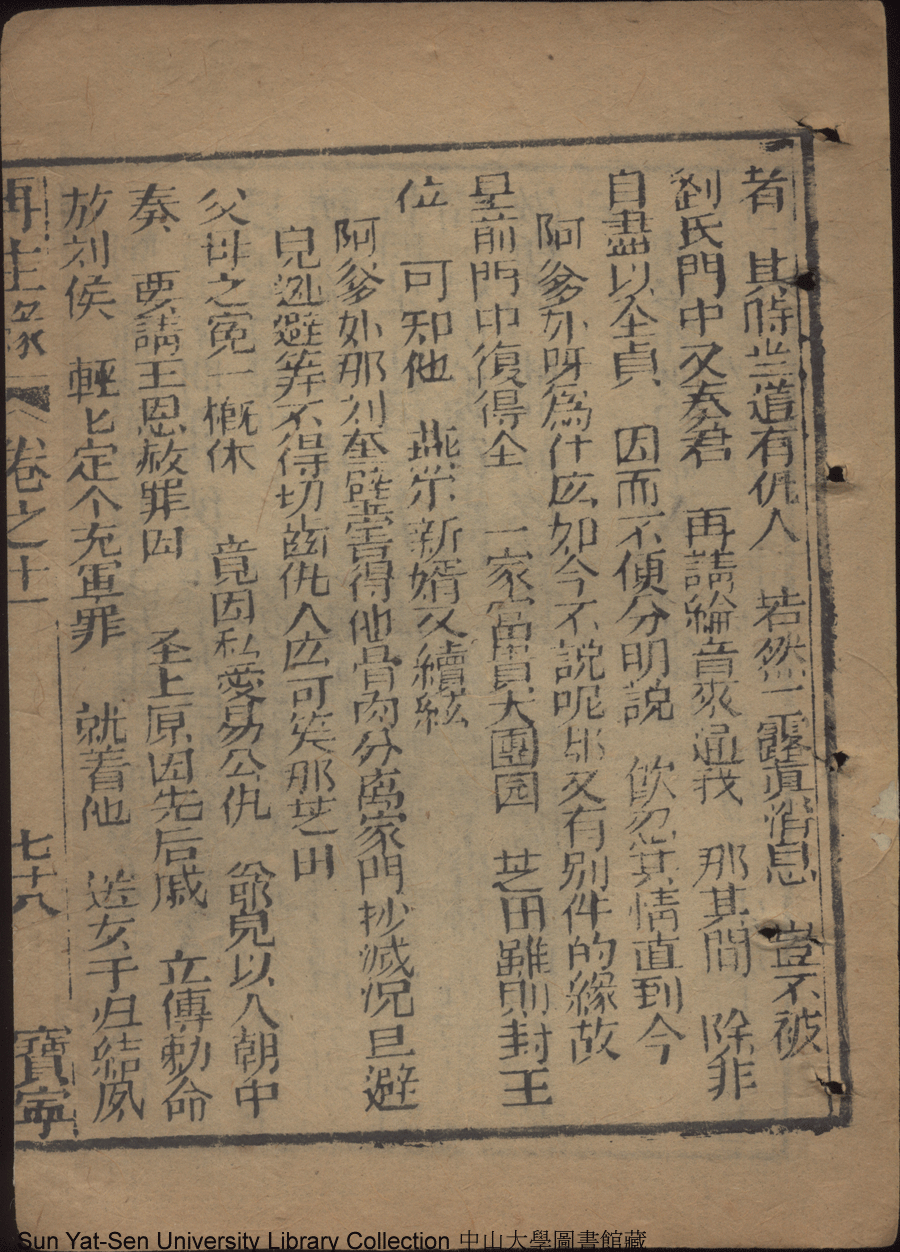 者　其時當道有仇人　若然一露真消息　豈不被
劉氏門中又奏君　再請綸音來逼我　那其間　除非
自盡以全貞　因而不便分明說　飲忍其情直到今
阿爹爷呀為什庅如今不說呢却又有別件的緣故
皇前門中復得全　一家富貴大團园　芝田雖則封王
位　可知他　燕尔新婿又續絃
阿爹爷那刘奎璧害得他骨肉分离家門抄滅况且避
皃迯避筭不得切齒仇人庅可笑那芝田
父母之冤一概休　竟因私愛易公仇　爺兒以入朝中
奏　要請王恩赦罪囚　圣上原因先后戚　立傳勅命
放刘侯　輕匕定个充軍罪　就着他　送女于归結夙
再生緣　卷之十一　七十八　寶寧
Sun Yat-Sen University Library Collection 中山大學圖書館藏